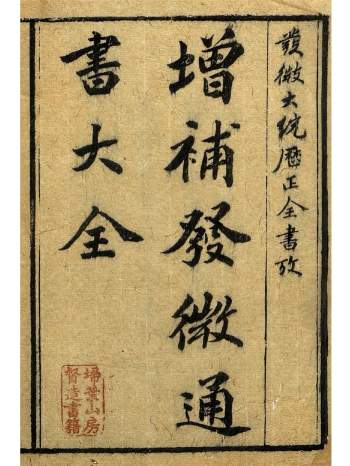 發微大統曆正全書攷
增補發微通
書大全
掃葉山房
督造書籍